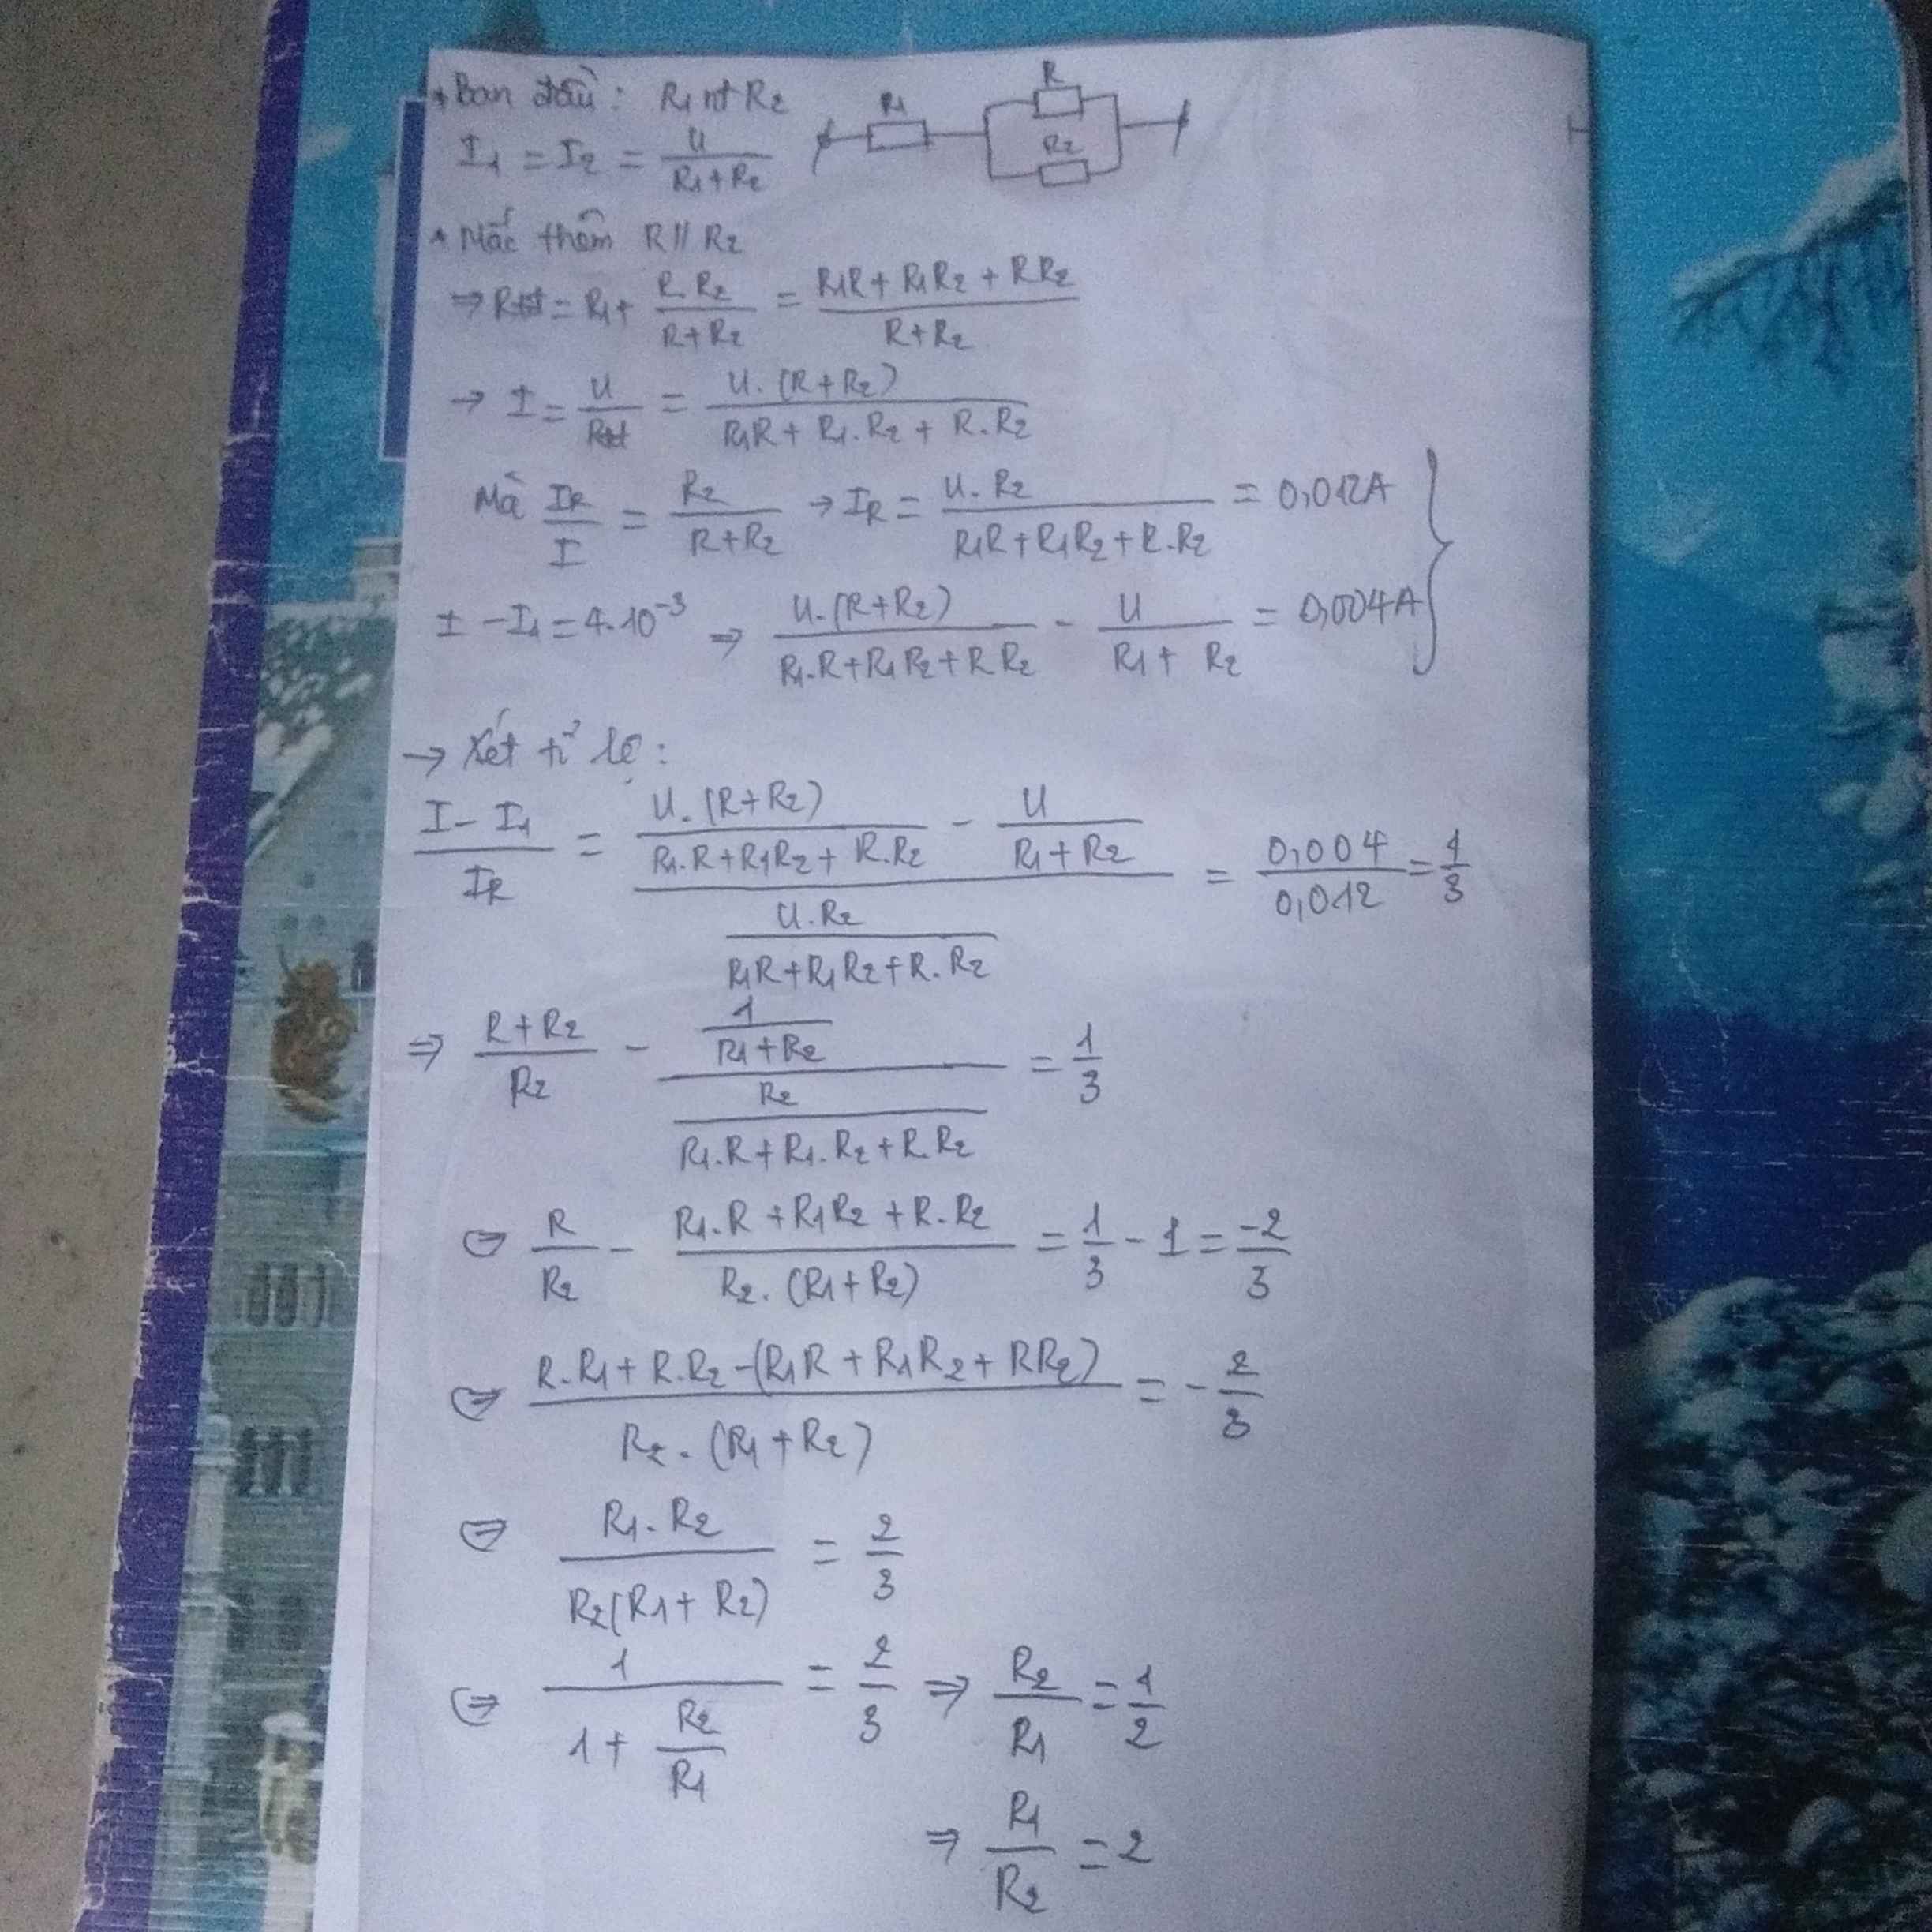 + Ban đầu: R1 nt R2
R1 R R2
I1 = I2 = U/(R1+R2)
* Mắc thêm R // R2
⇒ Rtđ = R1 + R.R2/(R+R2) = (R1R + R1R2 + RR2)/(R+R2)
→ I = U/Rtđ = U.(R+R2)/(R1R + R1.R2 + R.R2)
Mà IR/I = R2/(R+R2) → IR = U.R2/(R1R+R1R2+R.R2) = 0,012A
I - I1 = 4.10^-3 ⇒ U.(R+R2)/(R1.R+R1R2+RR2) - U/(R1+R2) = 0,004A
→ Xét tỉ lệ:
(I - I1)/IR = (U.(R+R2)/(R1.R+R1R2+R.R2) - U/(R1+R2))/(U.R2/(R1R+R1R2+R.R2)) = 0,004/0,012 = 1/3
⇒ (R+R2)/R2 - (1/(R1+R2))/(R2/(R1.R+R1.R2+R.R2)) = 1/3
⇔ R/R2 - (R1.R+R1R2+R.R2)/(R2.(R1+R2)) = 1/3 - 1 = -2/3
⇔ (R.R1+R.R2-(R1R+R1R2+RR2))/(R2.(R1+R2)) = -2/3
⇔ R1.R2/(R2(R1+R2)) = 2/3
⇔ 1/(1+R2/R1) = 2/3 ⇒ R2/R1 = 1/2
⇒ R1/R2 = 2